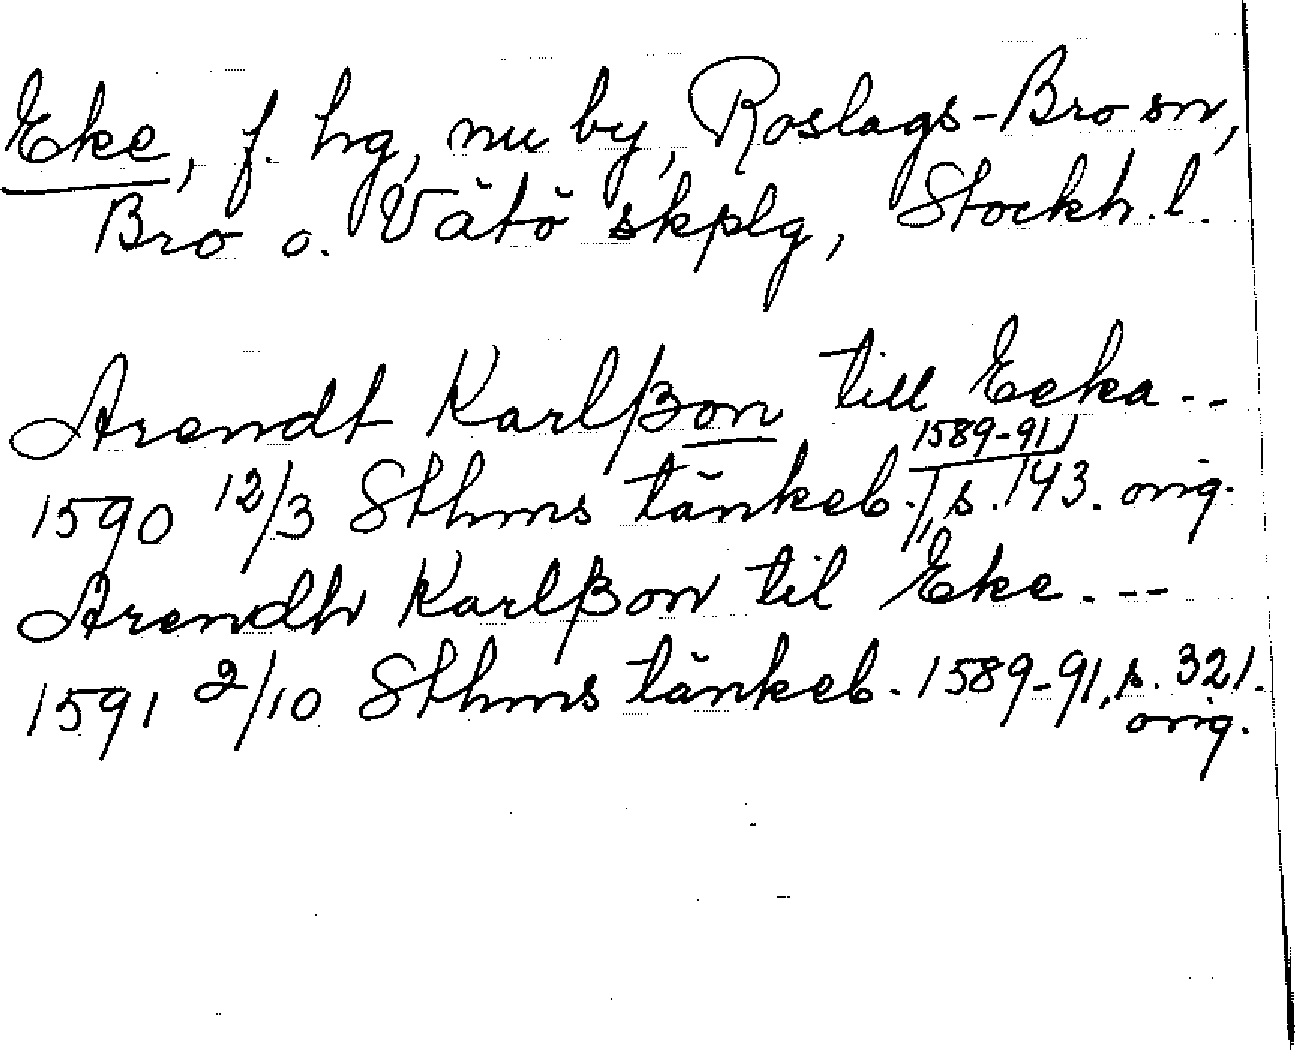 Eke, f. hg, nu by, Roslags-Bro sn,
Bro o. Vätö skplg, Stockh. l.
Arendt Karlßon till Ecka --
1589-91
1590 12/3 Sthms tänkeb., s. 143. orig.
Arendh Karlßon til Eke. ---
1591 2/10 Sthms tänkeb. 1589-91, s. 321.
orig.